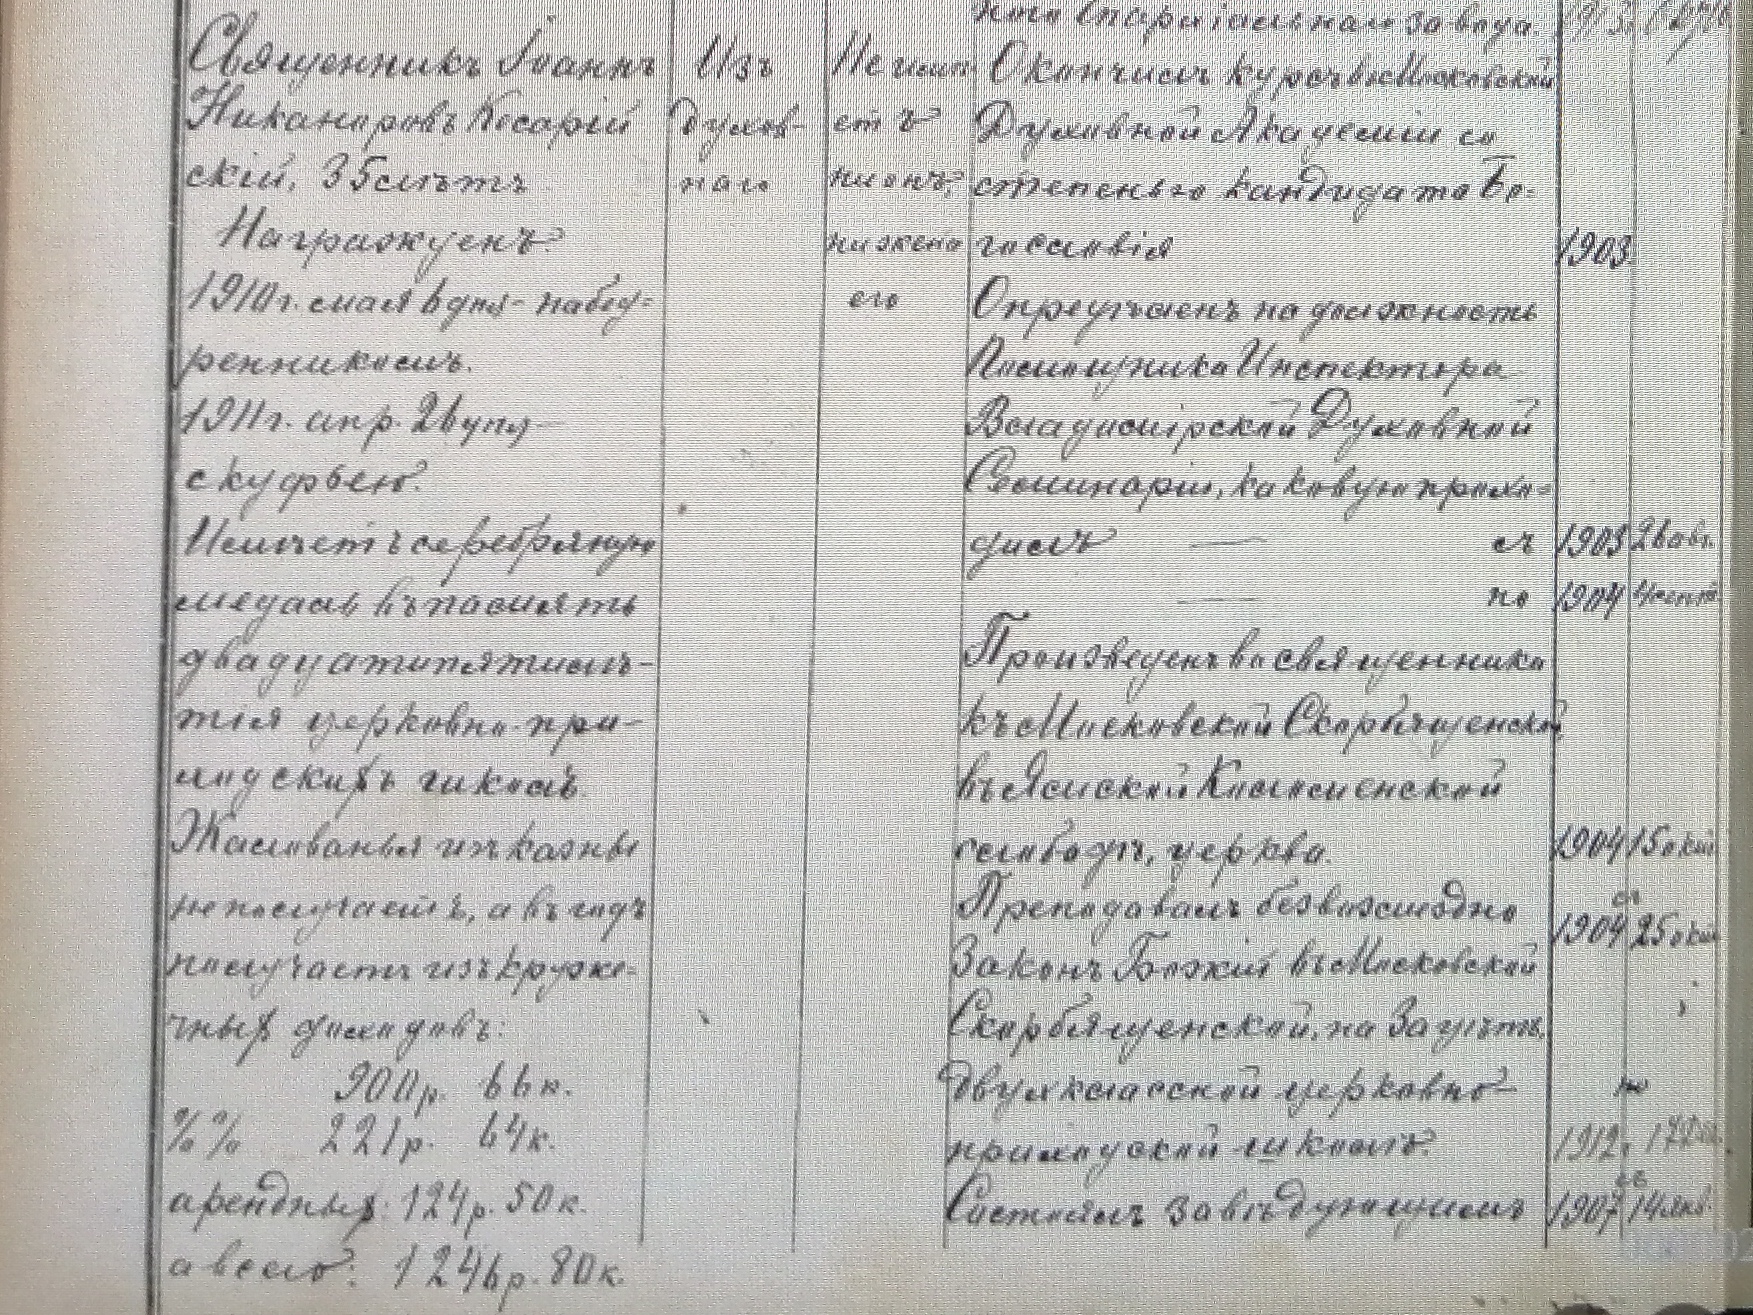 Священникъ Іоаннъ
Никаноровъ Косарій
скій, 35 лѣтъ
Награжденъ:
1910 г. мая 6 дня - набед-
ренникомъ.
1911 г. апр. 26 дня -
скуфьею.
Имѣетъ серебряную
медаль въ память
двадцатипятилѣ-
тія церковно-при-
ходскихъ школъ.
Жалованья изъ казны
не получаетъ, а въ годъ
получаетъ изъ круже-
чныхъ доходовъ:
900 р. 66 к.
%% 221 р. 64 к.
арендныхъ: 124 р. 50 к.
а всего: 1246 р. 80 к.
Изъ
духов-
наго
Не имѣ
етъ
ни онъ,
ни жена
его
завода. 1913
Окончилъ курсъ въ Московской
Духовной Академіи со
степенью кандидата Бо-
гословія 1903
Опредѣленъ на должность
Помощника Инспектора
Владимірской Духовной
Семинаріи, каковую прохо-
дилъ — съ 1903 26 авг.
— по 1904
Произведенъ во священника
къ Московской Скорбященской
въ Ямской Коломенской
слободѣ, церкви. 1904 15 окт
Преподавалъ безвозмездно съ
Законъ Божій въ Московской 1904 25 окт
Скорбященской, на Зацѣпѣ,
двухклассной церковно- по
приходской школѣ. 1912
Состоялъ завѣдующимъ съ 1907 14 янв.